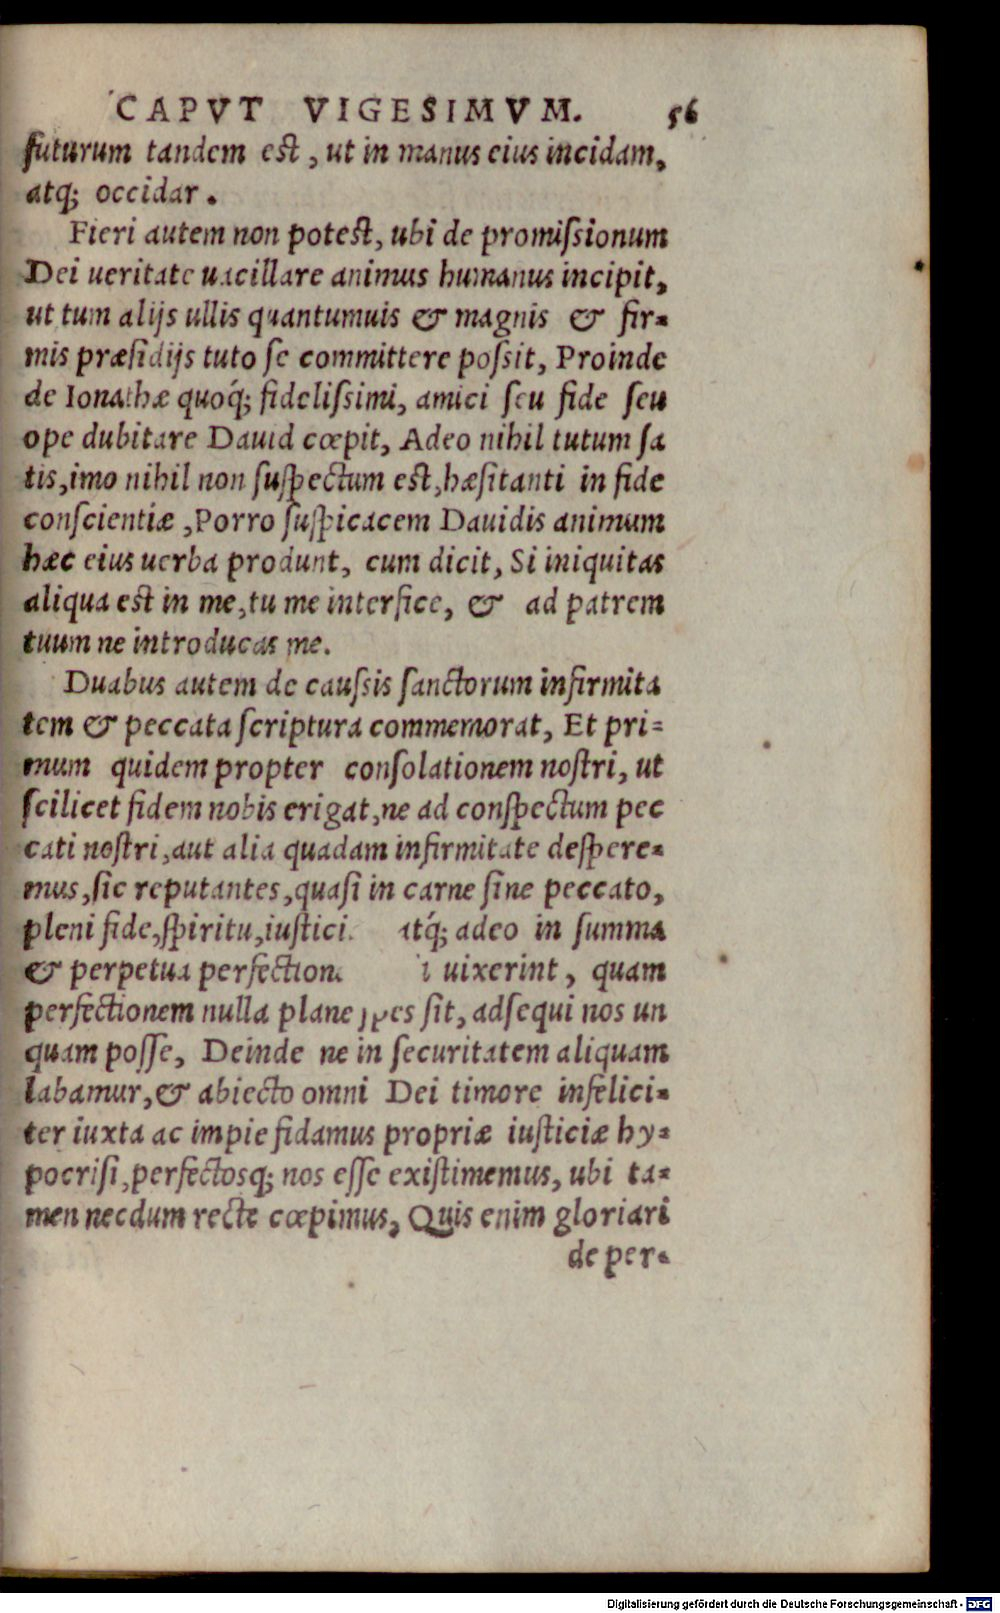 CAPVT VIGESIMVM. 56
futurum tandem est, ut in manus eius incidam,
atq; occidar.
Fieri autem non potest, ubi de promiſsionum
Dei ueritate uacillare animus humanus incipit,
ut tum alijs ullis quantumuis & magnis & fir-
mis præſidijs tuto ſe committere poſsit, Proinde
de Ionathæ quoq́; fideliſsimi, amici ſeu fide ſeu
ope dubitare Dauid cœpit, Adeo nihil tutum ſa
tis, imo nihil non ſuſpectum est, hæſitanti in fide
conſcientiæ, Porro ſuſpicacem Dauidis animum
hæc eius uerba produnt, cum dicit, Si iniquitas
aliqua est in me, tu me interfice, & ad patrem
tuum ne introducas me.
Duabus autem de cauſsis ſanctorum infirmita
tem & peccata ſcriptura commemorat, Et pri-
mum quidem propter conſolationem noſtri, ut
ſcilicet fidem nobis erigat, ne ad conſpectum pec
cati noſtri, aut alia quadam infirmitate deſpere-
mus, ſic reputantes, quaſi in carne ſine peccato,
pleni fide, ſpiritu, iuſtici atq́; adeo in ſumma
& perpetua perfection i uixerint, quam
perfectionem nulla plane ſpes ſit, adſequi nos un
quam poſſe, Deinde ne in ſecuritatem aliquam
labamur, & abiecto omni Dei timore infelici-
ter iuxta ac impie fidamus propriæ iuſticiæ hy-
pocriſi, perfectosq; nos eſſe exiſtimemus, ubi ta-
men necdum recte cœpimus, Quis enim gloriari
de per-
Digitalisierung gefördert durch die Deutsche Forschungsgemeinschaft - DFG